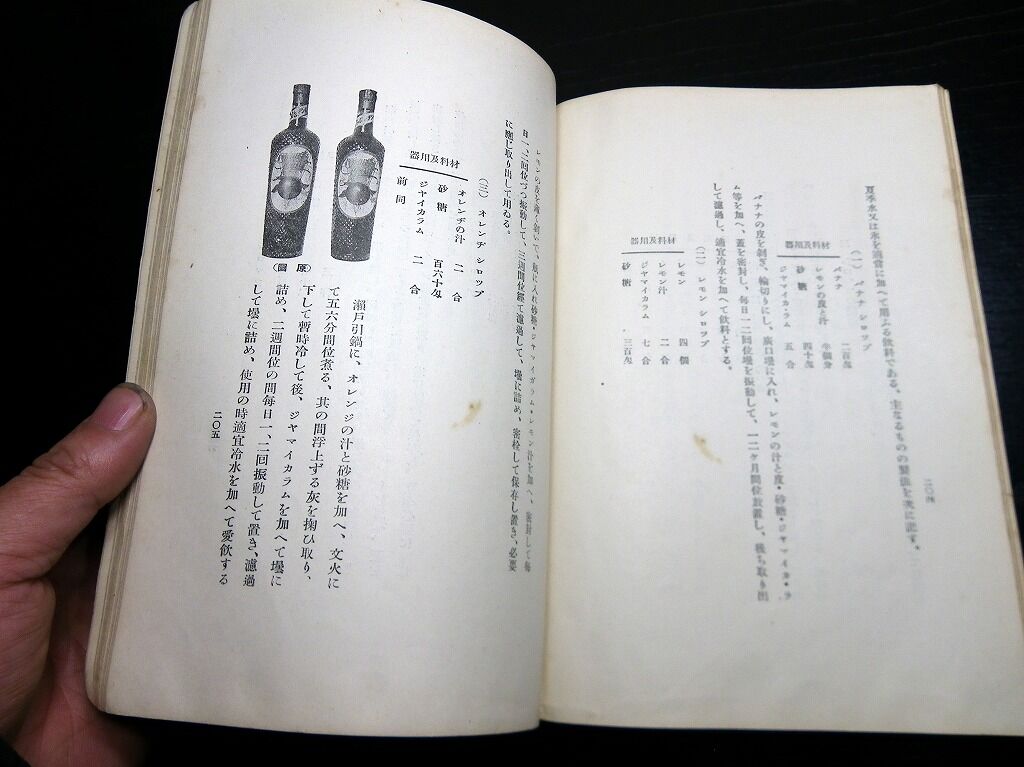 夏季水又は氷を適當に加へて用ふる飲料である、主なるものの製法を次に記す。
(一) バナナ シロップ
材料及用器
バナナ 二百匁
レモンの皮と汁 半個分
砂糖 四十匁
ジヤマイカラム 五合
バナナの皮を剝ぎ、輪切りにし、廣口壜に入れ、レモンの汁と皮・砂糖・ジヤマイカ・ラ
ム等を加へ、蓋を密封し、毎日一二回位壜を振動して、一二ケ月間位放置し、後ち取り出
して濾過し、適宜冷水を加へて飲料とする。
(二) レモン シロップ
材料及用器
レモン 四個
レモン汁 二合
ジヤマイカラム 七合
砂糖 三百匁
二〇四
レモンの皮を薄く剝いで、瓶に入れ砂糖・ジヤマイカラム・レモン汁を加へ、密封して毎
日一、二回位づつ振動して、三週間位經て濾過して、壜に詰め、密栓して保存し置き、必要
に應じ取り出して用ゐる。
(三) オレンヂ シロップ
材料及用器
オレンヂの汁 二合
砂糖 百六十匁
ジヤイカラム 二合
前同
瀬戸引鍋に、オレンジの汁と砂糖を加へ、文火に
て五六分間位煮る、其の間浮上ずる灰を掬ひ取り、
下して暫時冷して後、ジヤマイカラムを加へて壜に
詰め、二週間位の間毎日一、二回振動して置き、濾過
して壜に詰め、使用の時適宜冷水を加へて愛飲する
(圖原)
二〇五